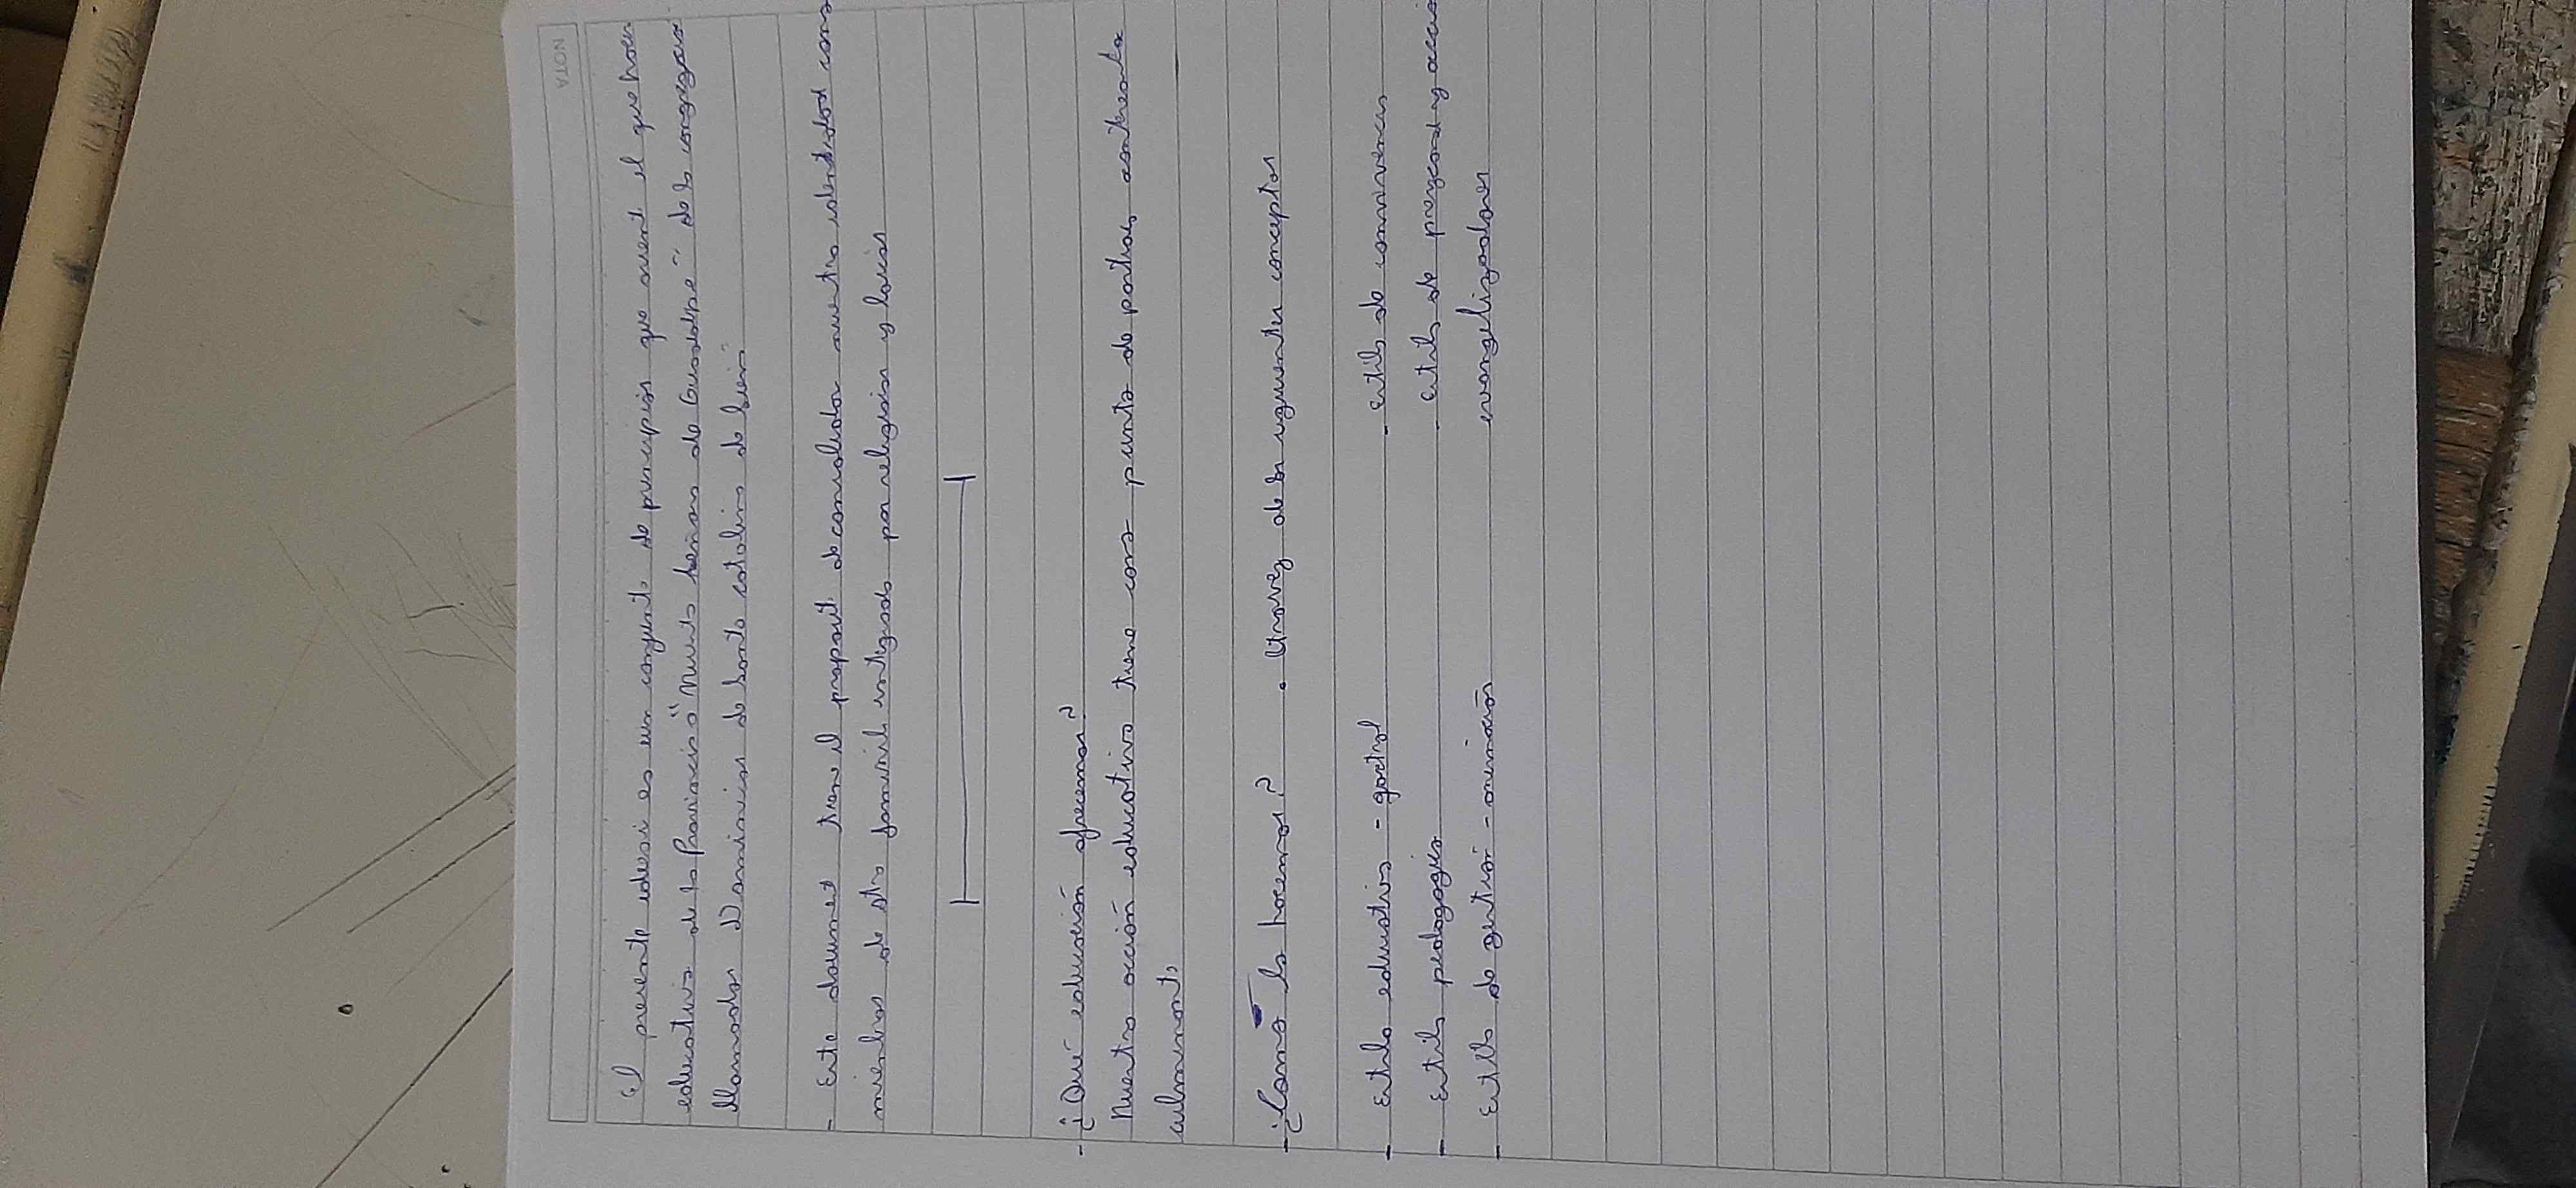 NOTA
El presente ideasi es un conjunto de principios que orient el que hacer
educativo de la Provincia "Nuestr Señora de Guadalpe" de la congregacio
Hermanas Dominicas de Santa catalina de Siena
- Este document tiene el proposit de consolidar nuestra identidad como
miembros de una familia integrada por religiosas y laicos
- ¿Qué educación ofrecemos?
Nuestra acción educativa tiene como punto de partida,
- ¿Como lo hacemos? • atravez de los siguientes conceptos
- Estilo educativo - - estilo de convivencia
- Estilo pedagogico - estilo de y accio
- Estilo de gestion - animación evangelizadora